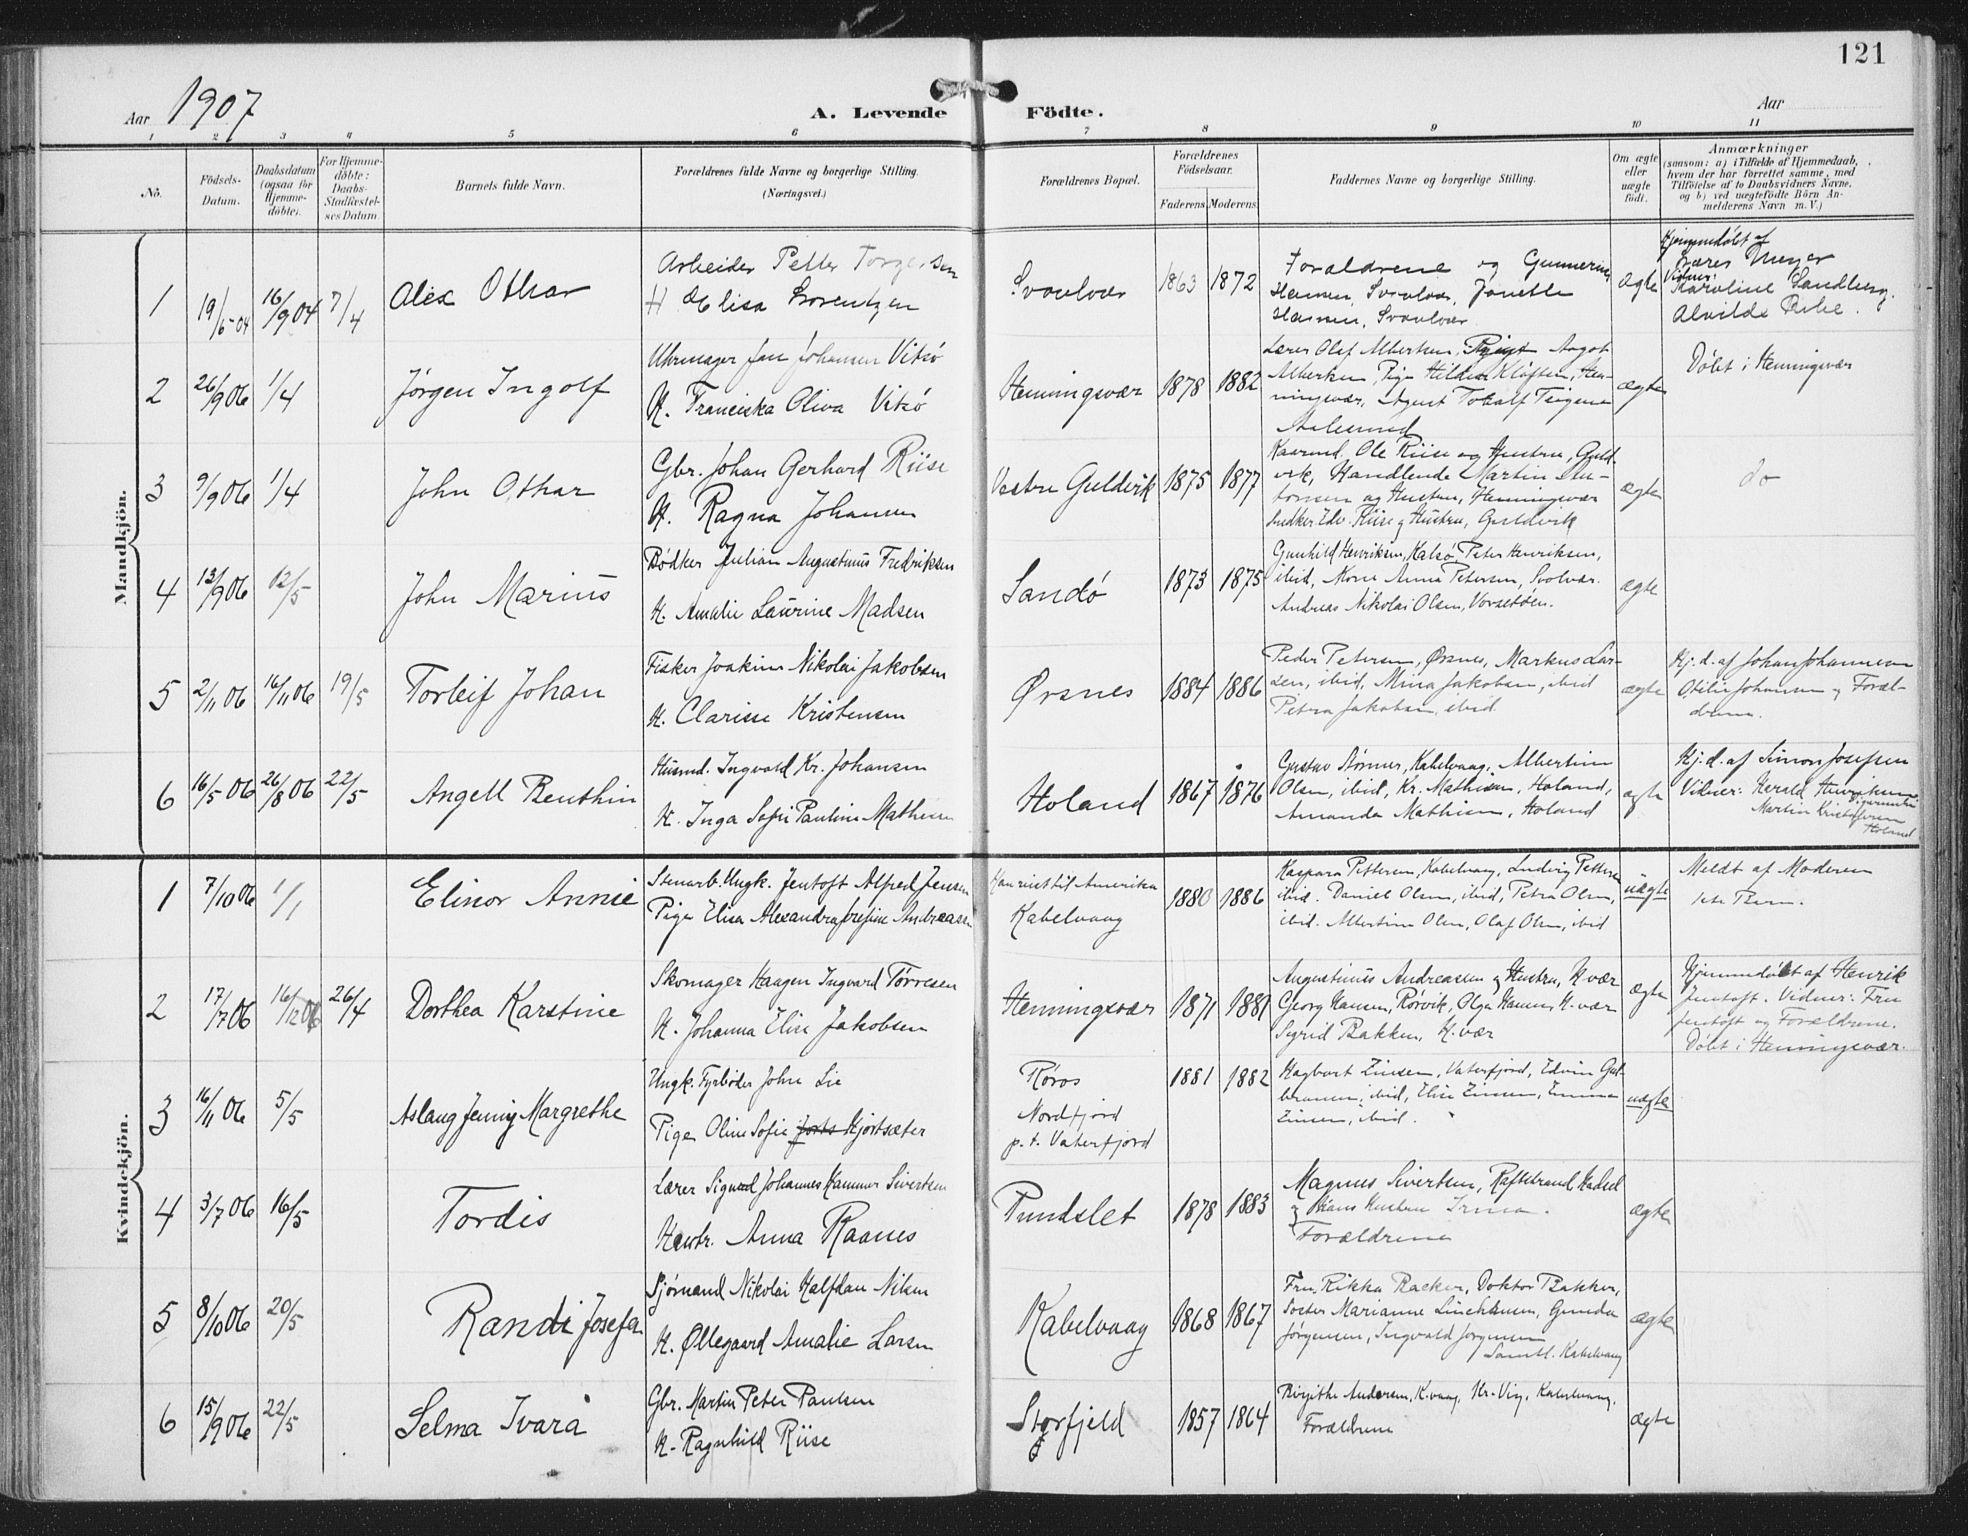 121
Aar 1907
A. Levende Födte.
Aar
1 2 3 4 5 6 7 8 9 10 11
No.
Födsels-Datum.
Daabsdatum (ogsaa for Hjemme-döbte).
For Hjemme-döbte: Daabs-Stadfæstel-ses Datum.
Barnets fulde Navn.
Forældrenes fulde Navne og borgerlige Stilling.
(Næringsvei.)
Forældrenes Bopæl.
Forældrenes Födselsaar.
Faderens. Moderens.
Faddernes Navne og borgerlige Stilling.
Om ægte eller uægte født.
Anmærkninger
(saasom: a) i Tilfælde af Hjemmedaab,
hvem der har forrettet samme, med
Tilföielse af to Daabsvidners Navne,
og b) ved uægtefödte Börn An-
melderens Navn m. V.)
Mandkjön.
1 19/5-04 16/9 04 7/4 Alex Othar
Arbeider Petter Torgersen
H Elisa Lorentzen
Svolvær 1863 1872
Forældrene og
Hansen, Svolvær, Janette
Hansen, Svolvær
ægte
Hjemmedøbt af
Lærer Meyer
Vidner:
Karoline Sandberg.
Alvilde
2 26/9 06 1/4 Jørgen Ingolf
Uhrmager Jan Johansen Vitsø
H. Franciska Oliva Vitsø
Henningsvær 1878 1882
Lærer Olaf Albertsen, Aagot
Albertsen, Pige Hilda Kløften, Hen-
ningsvær, Agent
ægte
Døbt i Henningsvær
3 9/9 06 1/4 John Othar
Gbr. Johan Gerhard Riise
H. Ragna Johansen
Vestre Guldvik 1875 1877
Ole Riise og Hustru, Guld-
vik, Handlende Martin
og Hustru, Henningsvær
Edv. Riise og Hustru, Guldvik
ægte
do
4 13/9 06 12/5 John Marius
Bødker Julian Augustinus Fredriksen
H. Amalie Laurine Madsen
Sandø 1873 1875
Gunhild Henriksen, Kalsø, Peter Henriksen,
ibid, Kone Anna Petersen, Svolvær.
Andreas Nikolai Olsen, Vorsetøen.
ægte
5 2/11 06 16/11 06 19/5 Torleif Johan
Fisker Joakim Nikolai Jakobsen
H. Clarisse Kristensen
Ørsnes 1884 1886
Peder Petersen, Ørsnes, Markus Lar-
sen, ibid, Mina Jakobsen, ibid
Petra Jakobsen, ibid
ægte
Hj. d. af Johan Johannesen
Otilie Johansen og Foræl-
drene.
6 16/5 06 26/8 06 22/5 Angell Benthin
Husmd. Ingvald Kr. Johansen
H. Inga Sofie Pauline Mathisen
Holand 1867 1876
Gustav Størmer, Kabelvaag, Albertine
Olsen, ibid, Kr. Mathisen, Holand,
Amanda Mathisen, Holand
ægte
Hj. d. af Simon Josefsen
Vidner: Herald Henriksen
Martin Kristoffersen
Holand
Kvindekjön.
1 7/10 06 1/1 Elinor Annie
Stenarb. Ungk. Jentoft Alfred Jensen
Pige Elisa Alexandra Josefine Andreassen
Han reist til Amerika
Kabelvaag 1880 1886
Kaspara Pettersen, Kabelvaag, Ludvig Pettersen
ibid. Daniel Olsen, ibid, Petra Olsen,
ibid. Albertine Olsen, Olaf Olsen, ibid
uægte
Meldt af Moderen
1ste Barn.
2 17/7 06 16/12 06 26/4 Dorthea Karstine
Skomager Haagen Ingvard Tørresen
H. Johanna Elise Jakobsen
Henningsvær 1871 1881
Augustinus Andreassen og Hustru, H.vær
Georg Hansen, Rørvik, Olga Hansen, H.vær
Sigrid Bakken, H.vær
ægte
Hjemmedøbt af Henrik
Jentoft. Vidner: Fru
Jentoft og Forældrene.
Døbt i Henningsvær.
3 16/11 06 5/5 Aslaug Jenny Margrethe
Ungk. Fyrbøder John Lie
Pige Oline Sofie Hjortsæter
Røros
Nordfjord
p. t. Vaterfjord 1881 1882
Hagbart Zinsen, Vaterfjord, Edvin Gul-
bransen, ibid, Elise Zinsen, Emma
Zinsen, ibid.
uægte
4 3/7 06 16/5 Tordis
Lærer Sigurd Johannes Hammer Sivertsen
Hustr. Anna Raanes
Pundslet 1878 1883
Magnus Sivertsen, Raftsund Hadsel
og Hans Hustru Irma.
Forældrene
ægte
5 8/10 06 20/5 Randi Josefa
Sjømand Nikolai Halfdan Nilsen
H. Øllegaard Amalie Larsen
Kabelvaag 1868 1867
Fru Rikka Backer, Doktor Bakker,
Søster Marianne, Gunda
Jørgensen, Ingvald Jørgensen
Samtl. Kabelvaag
ægte
6 15/9 06 22/5 Selma Ivara
Gbr. Martin Peter Paulsen
H. Ragnhild Riise
Storfjeld 1857 1864
Birgithe Andersen, K.vaag, Kr. Vig, Kabelvaag,
Forældrene
ægte